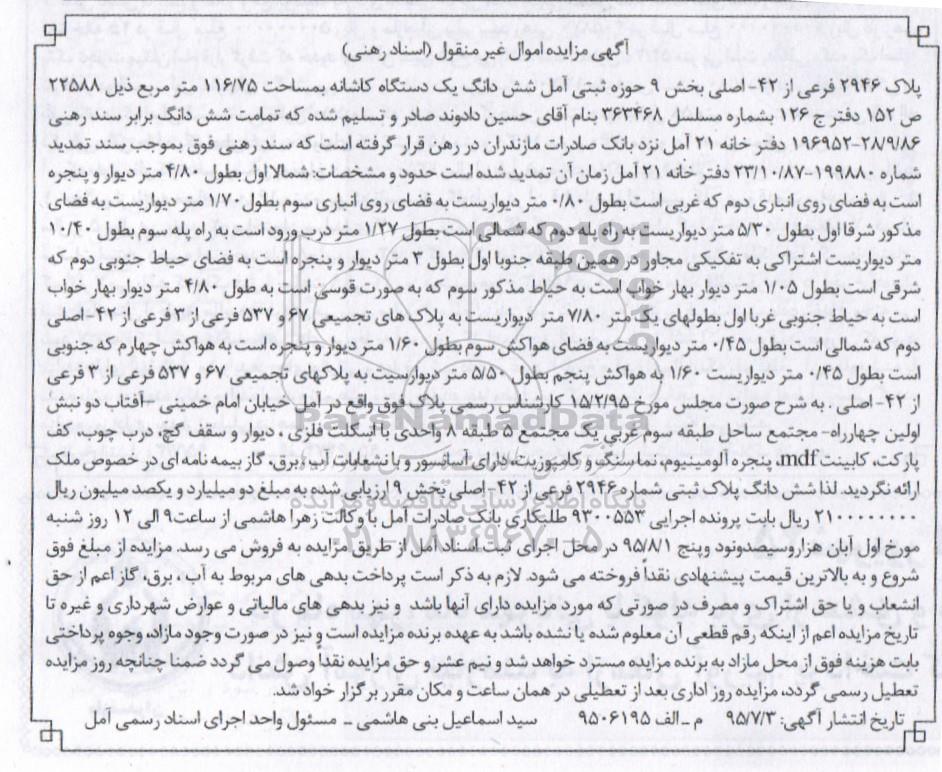 آگهی مزایده اموال غیر منقول (اسناد رهنی)
پلاک ۲۹۴۶ فرعی از ۴۲- اصلی بخش ۹ حوزه ثبتی آمل شش دانگ یک دستگاه کاشانه بمساحت ۱۱۶/۷۵ متر مربع ذیل ۲۲۵۸۸
ص ۱۵۲ دفتر ج ۱۲۶ بشماره مسلسل ۳۶۳۴۶۸ بنام آقای حسین دادوند صادر و تسلیم شده که تمامت شش دانگ برابر سند رهنی
۲۸/۹/۸۶-۱۹۶۹۵۲ دفتر خانه ۲۱ آمل نزد بانک صادرات مازندران در رهن قرار گرفته است که سند رهنی فوق بموجب سند تمدید
شماره ۱۹۹۸۸۰-۲۳/۱۰/۸۷ دفتر خانه ۲۱ آمل زمان آن تمدید شده است حدود و مشخصات: شمالا اول بطول ۴/۸۰ متر دیوار و پنجره
است به فضای روی انباری دوم که غربی است بطول ۰/۸۰ متر دیواریست به فضای روی انباری سوم بطول ۱/۷۰ متر دیواریست به فضای
مذکور شرقا اول بطول ۵/۳۰ متر دیواریست به راه پله دوم که شمالی است بطول ۱/۲۷ متر درب ورود است به راه پله سوم بطول ۱۰/۴۰
متر دیواریست اشتراکی به تفکیکی مجاور در همین طبقه جنوبا اول بطول ۳ متر دیوار و پنجره است به فضای حیاط جنوبی دوم که
شرقی است بطول ۱/۰۵ متر دیوار بهار خواب است به حیاط مذکور سوم که به صورت قوسی است به طول ۴/۸۰ متر دیوار بهار خواب
است به حیاط جنوبی غربا اول بطولهای یک متر ۷/۸۰ متر دیواریست به پلاک های تجمیعی ۶۷ و ۵۳۷ فرعی از ۳ فرعی از ۴۲- اصلی
دوم که شمالی است بطول ۰/۴۵ متر دیواریست به فضای هواکش سوم بطول ۱/۶۰ متر دیوار و پنجره است به هواکش چهارم که جنوبی
است بطول ۰/۴۵ متر دیواریست ۱/۶۰ به هواکش پنجم بطول ۵/۵۰ متر دیوارسیت به پلاکهای تجمیعی ۶۷ و ۵۳۷ فرعی از ۳ فرعی
از ۴۲- اصلی . به شرح صورت مجلس مورخ ۱۵/۲/۹۵ کارشناس رسمی پلاک فوق واقع در آمل خیابان امام خمینی -آفتاب دو نبش
اولین چهارراه- مجتمع ساحل طبقه سوم غربی یک مجتمع ۵ طبقه ۸ واحدی با اسکلت فلزی ، دیوار و سقف گچ، درب چوب، کف
پارکت، کابینت mdf، پنجره آلومینیوم، نماسنگ و کامپوزیت، دارای آسانسور و با نشهابات آب، برق، گاز بیمه نامه ای در خصوص ملک
ارائه نگردید. لذا شش دانگ پلاک ثبتی شماره ۲۹۴۶ فرعی از ۴۲- اصلی بخش ۹ ارزیابی شده به مبلغ دو میلیارد و یکصد میلیون ریال
۲۱۰۰۰۰۰۰۰۰ ریال بابت پرونده اجرایی ۹۳۰۰۵۵۳ طلبکاری بانک صادرات آمل با وکالت زهرا هاشمی از ساعت ۹ الی ۱۲ روز شنبه
مورخ اول آبان هزاروسیصدونود وپنج ۹۵/۸/۱ در محل اجرای ثبت اسناد آمل از طریق مزایده به فروش می رسد. مزایده از مبلغ فوق
شروع و به بالاترین قیمت پیشنهادی نقداً فروخته می شود. لازم به ذکر است پرداخت بدهی های مربوط به آب ، برق، گاز اعم از حق
انشعاب و یا حق اشتراک و مصرف در صورتی که مورد مزایده دارای آنها باشد و نیز بدهی های مالیاتی و عوارض شهرداری و غیره تا
تاریخ مزایده اعم از اینکه رقم قطعی آن معلوم شده یا نشده باشد به عهده برنده مزایده است و نیز در صورت وجود مازاد، وجوه پرداختی
بابت هزینه فوق از محل مازاد به برنده مزایده مسترد خواهد شد و نیم عشر و حق مزایده نقداً وصول می گردد ضمنا چنانچه روز مزایده
تعطیل رسمی گردد، مزایده روز اداری بعد از تعطیلی در همان ساعت و مکان مقرر برگزار خواد شد.
تاریخ انتشار آگهی: ۹۵/۷/۳ م ـ الف ۹۵۰۶۱۹۵ سید اسماعیل بنی هاشمی ـ مسئول واحد اجرای اسناد رسمی آمل
ParsNamadData
پایگاه اطلاع رسانی مناقصه و مزایده
۰۲۱-۸۸۳۴۹۶۷۰-۵